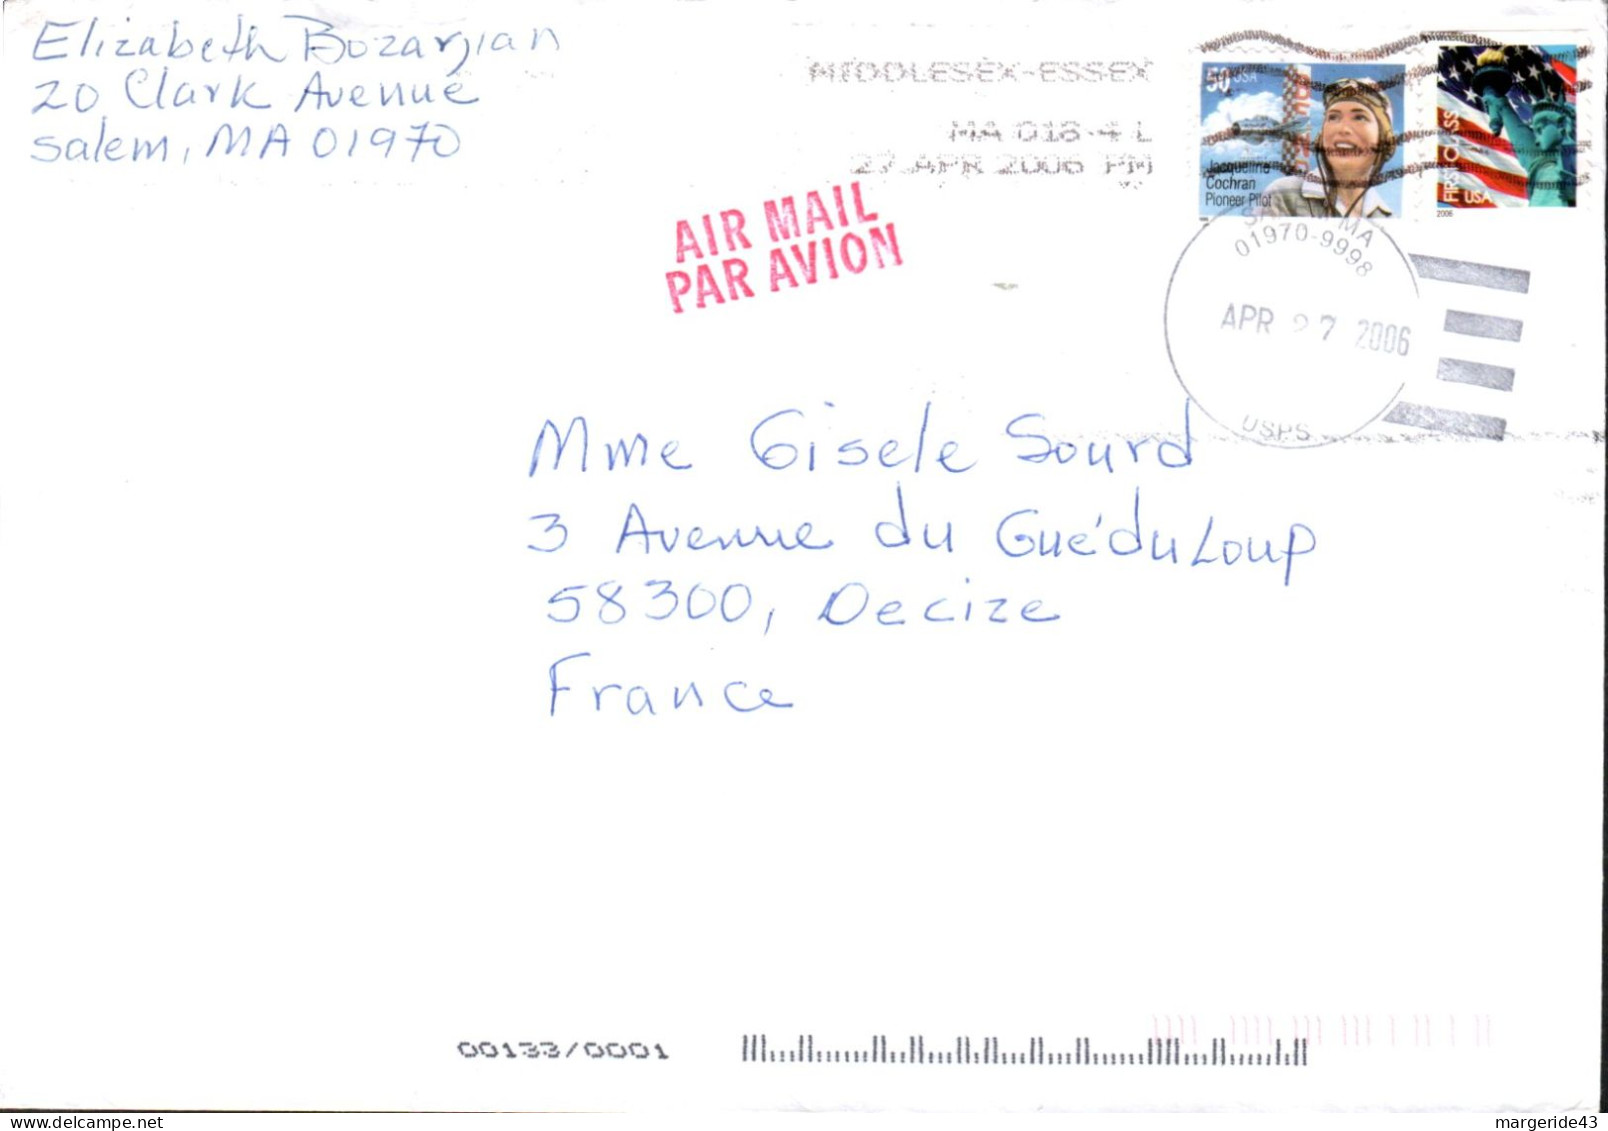 Elizabeth Bozarjian
20 Clark Avenue
Salem, MA 01970
MIDDLESEX-ESSEX
MA 018 4 L
27 APR 2006 PM
AIR MAIL
PAR AVION
50 USA
Jacqueline
Cochran
Pioneer Pilot
FIRST-CLASS
USA
2006
MA
01970-9998
APR 27 2006
USPS
Mme Gisele Sourd
3 Avenue du Gué du Loup
58300, Decize
France
00133/0001
margeride43